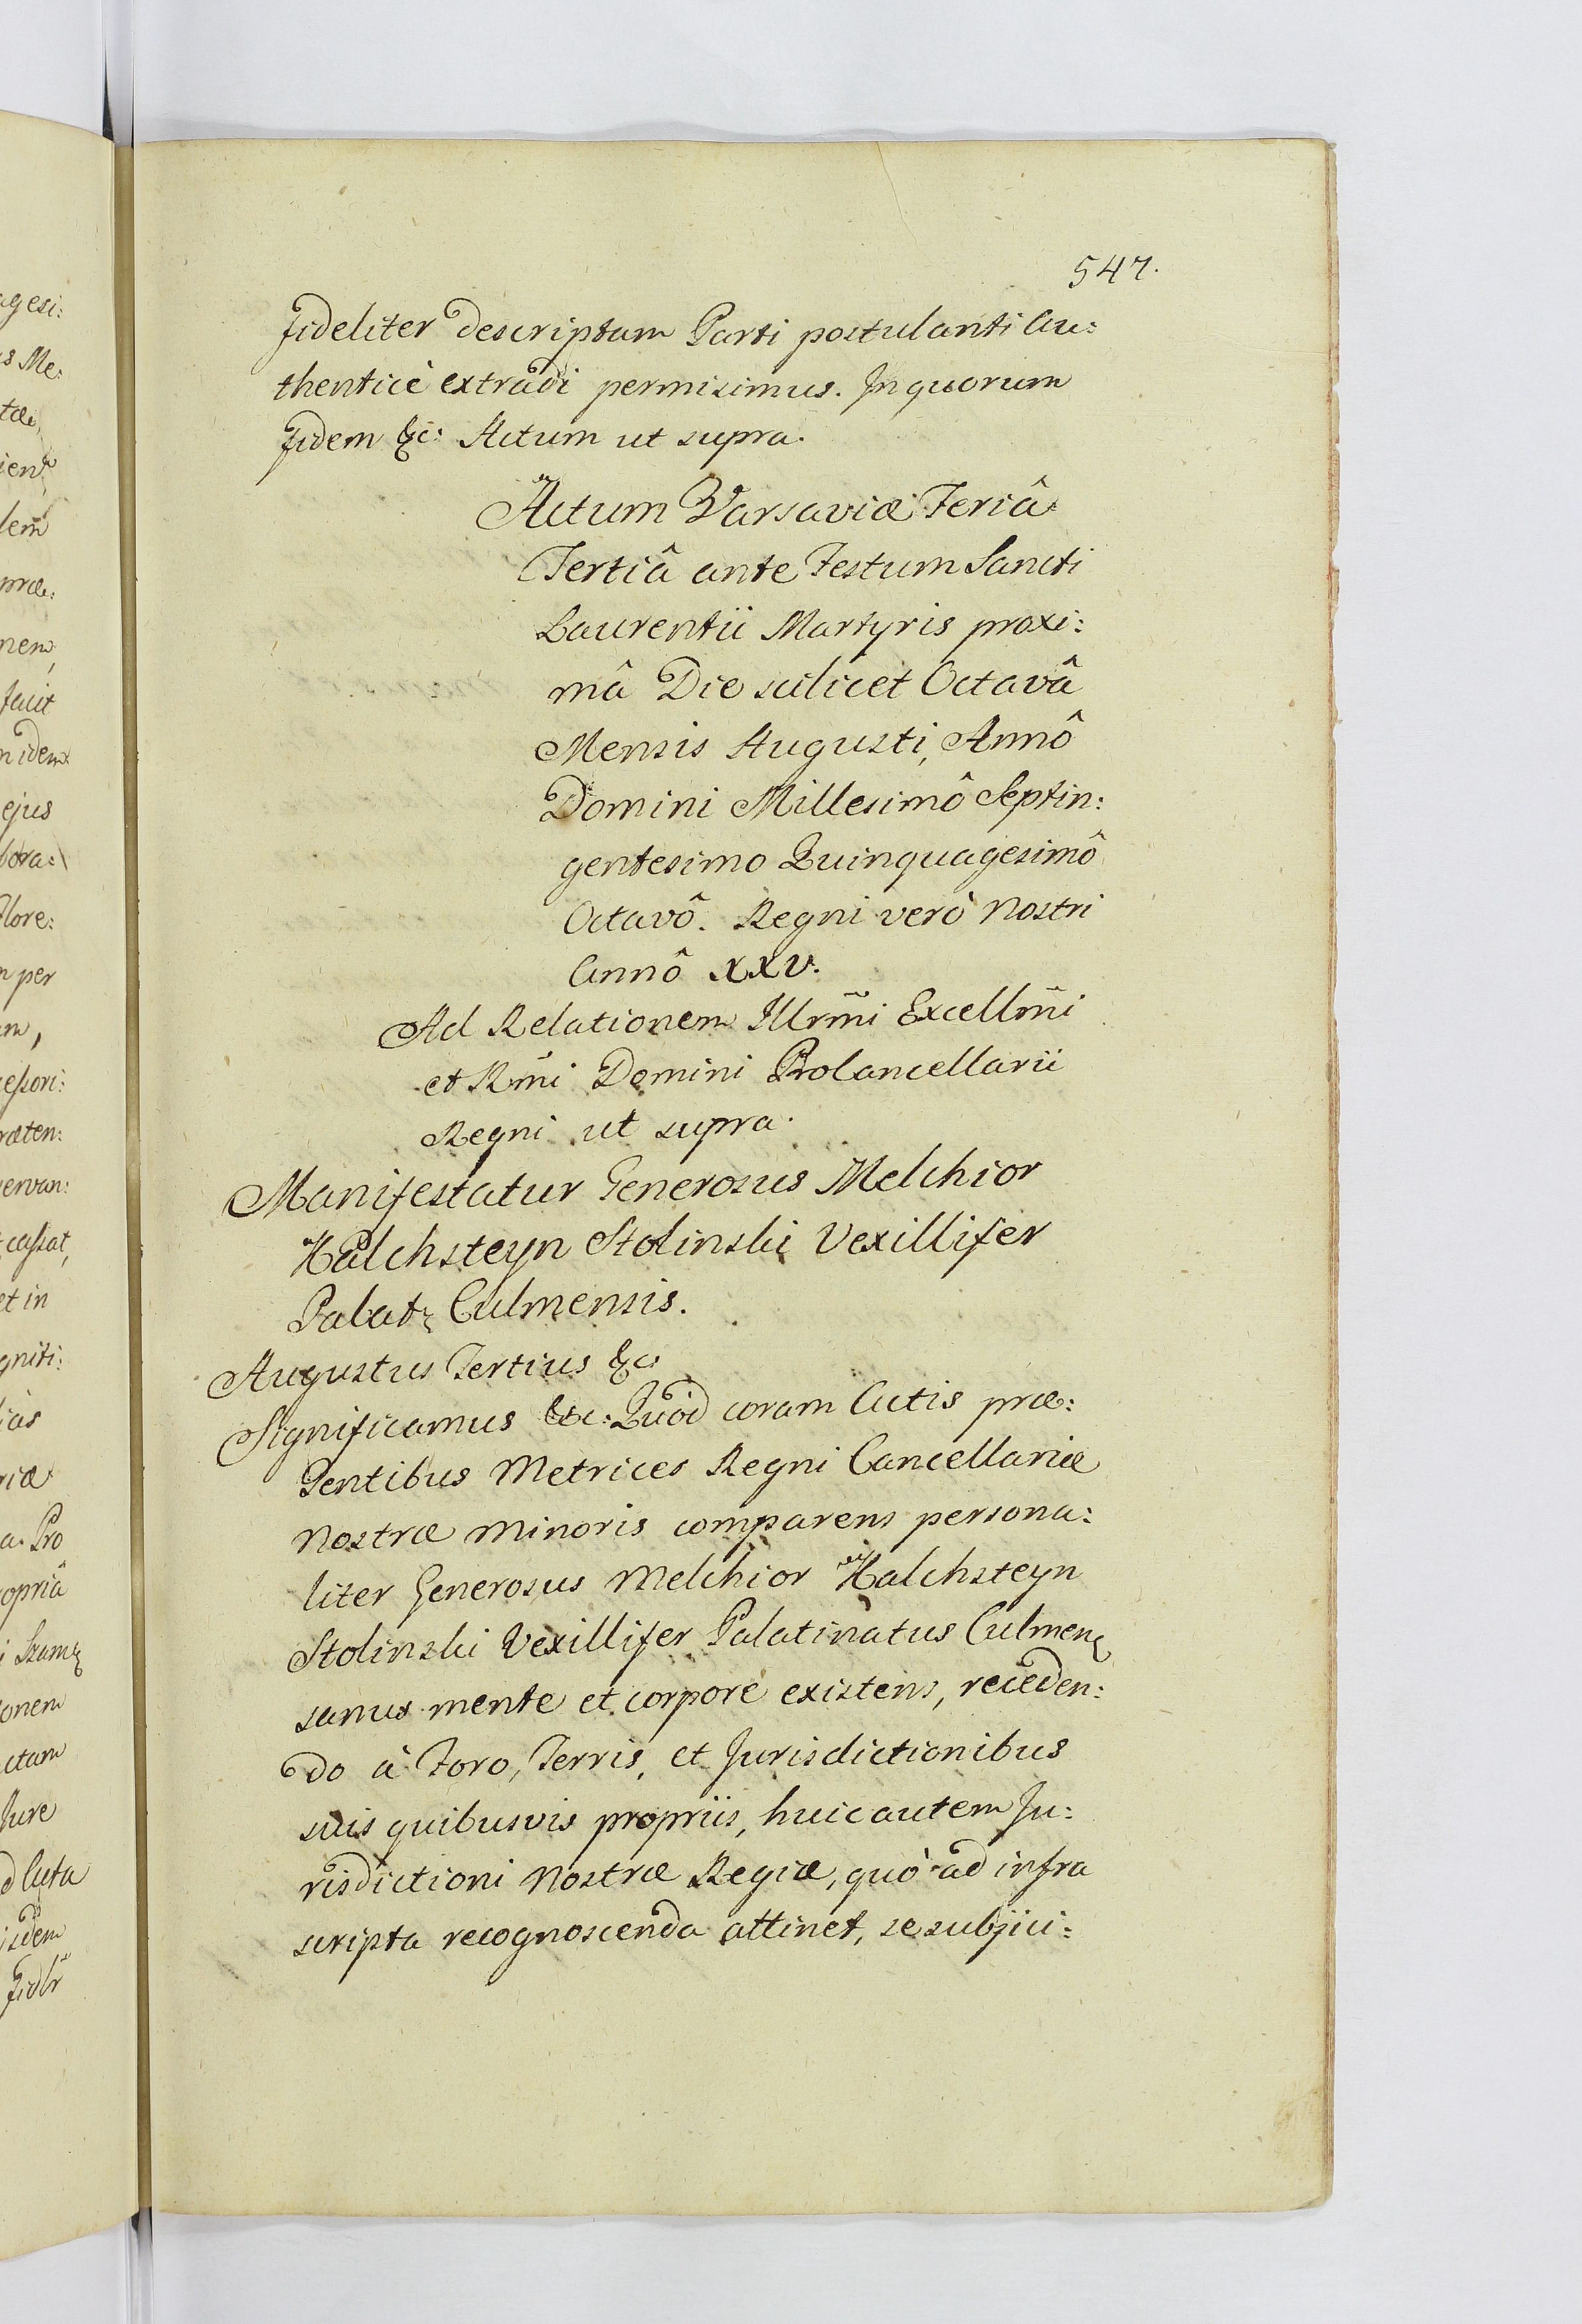 547.
fideliter descriptum Parti postulanti Au:
thenticè extradi permisimus. In quorum
fidem &c: Actum ut supra.
Actum Varsaviæ Feriâ
Tertiâ ante Festum Sancti
Laurentii Martyris proxi:
mâ Die scilicet Octavâ
Mensis Augusti, Annô
Domini Millesimô Septin:
gentesimo Quinquagesimô
Octavô. Regni verò Nostri
Annô XXV.
Ad Relationem Illrm̃i Excellm̃i
et Rm̃i Domini Procancellarii
Regni ut supra.
Manifestatur Generosus Melchior
Halchsteyn Stolinski Vexillifer
Palat: Culmensis.
Augustus Tertius &c:
Significamus &c: Quòd coram Actis præ:
sentibus Metrices Regni Cancellariæ
Nostræ Minoris comparens persona:
liter Generosus Melchior Halchsteyn
Stolinski Vexillifer Palatinatus Culmen:
sanus mente et corpore existens, receden:
do à Foro, Terris, et Jurisdictionibus
suis quibusvis propriis, huic autem Ju:
risdictioni Nostræ Regiæ, quò ad infra
scripta recognoscenda attinet, se subjici:
agesi:
præ:
idem
ejus
flore:
per
ræten:
ervan:
cassat,
et in
gniti:
a. Pro
opriâ
onem
ctam
Jure
Acta